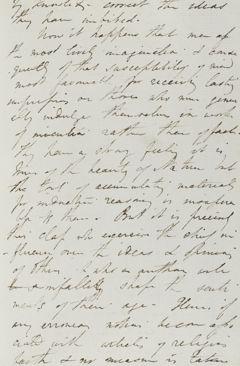 of knowledge correct the ideas
they have imbibed.
Now it happens that men of
the most lively imagination & conse
quently of that susceptibility of mind
most favourable for receiving lasting
impressions are those who more gener
ally indulge themselves in works
of rather than of facts.
They have a strong feeling it is
true of the beauty of Nature but
the of accumulating materials
for reasoning is
to them. But it is precisely
this class who exercise the chief in
fluence over the ideas & opinions
of others.
infallibly shape the senti
ments of their age. Hence if
any erroneous notion become asso
ciated with of religious
faith & no measure is taken